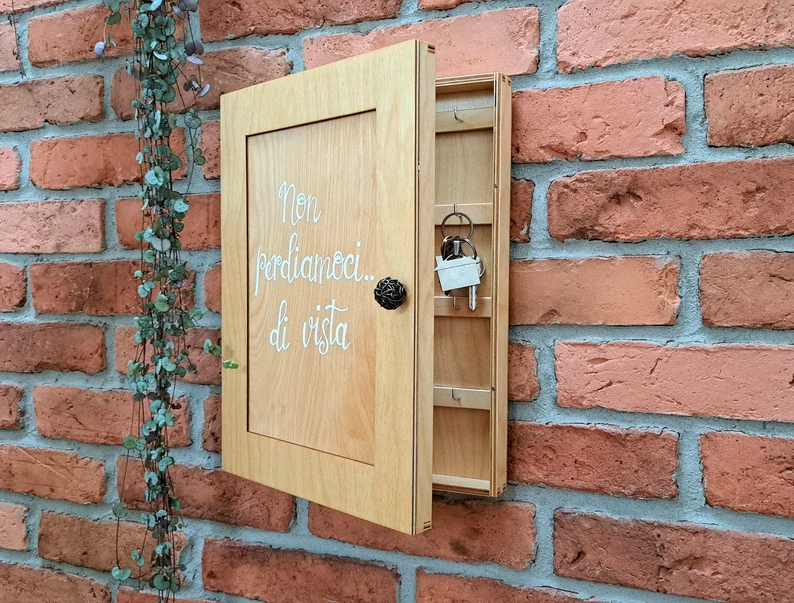 Non
perdiamoci..
di vista